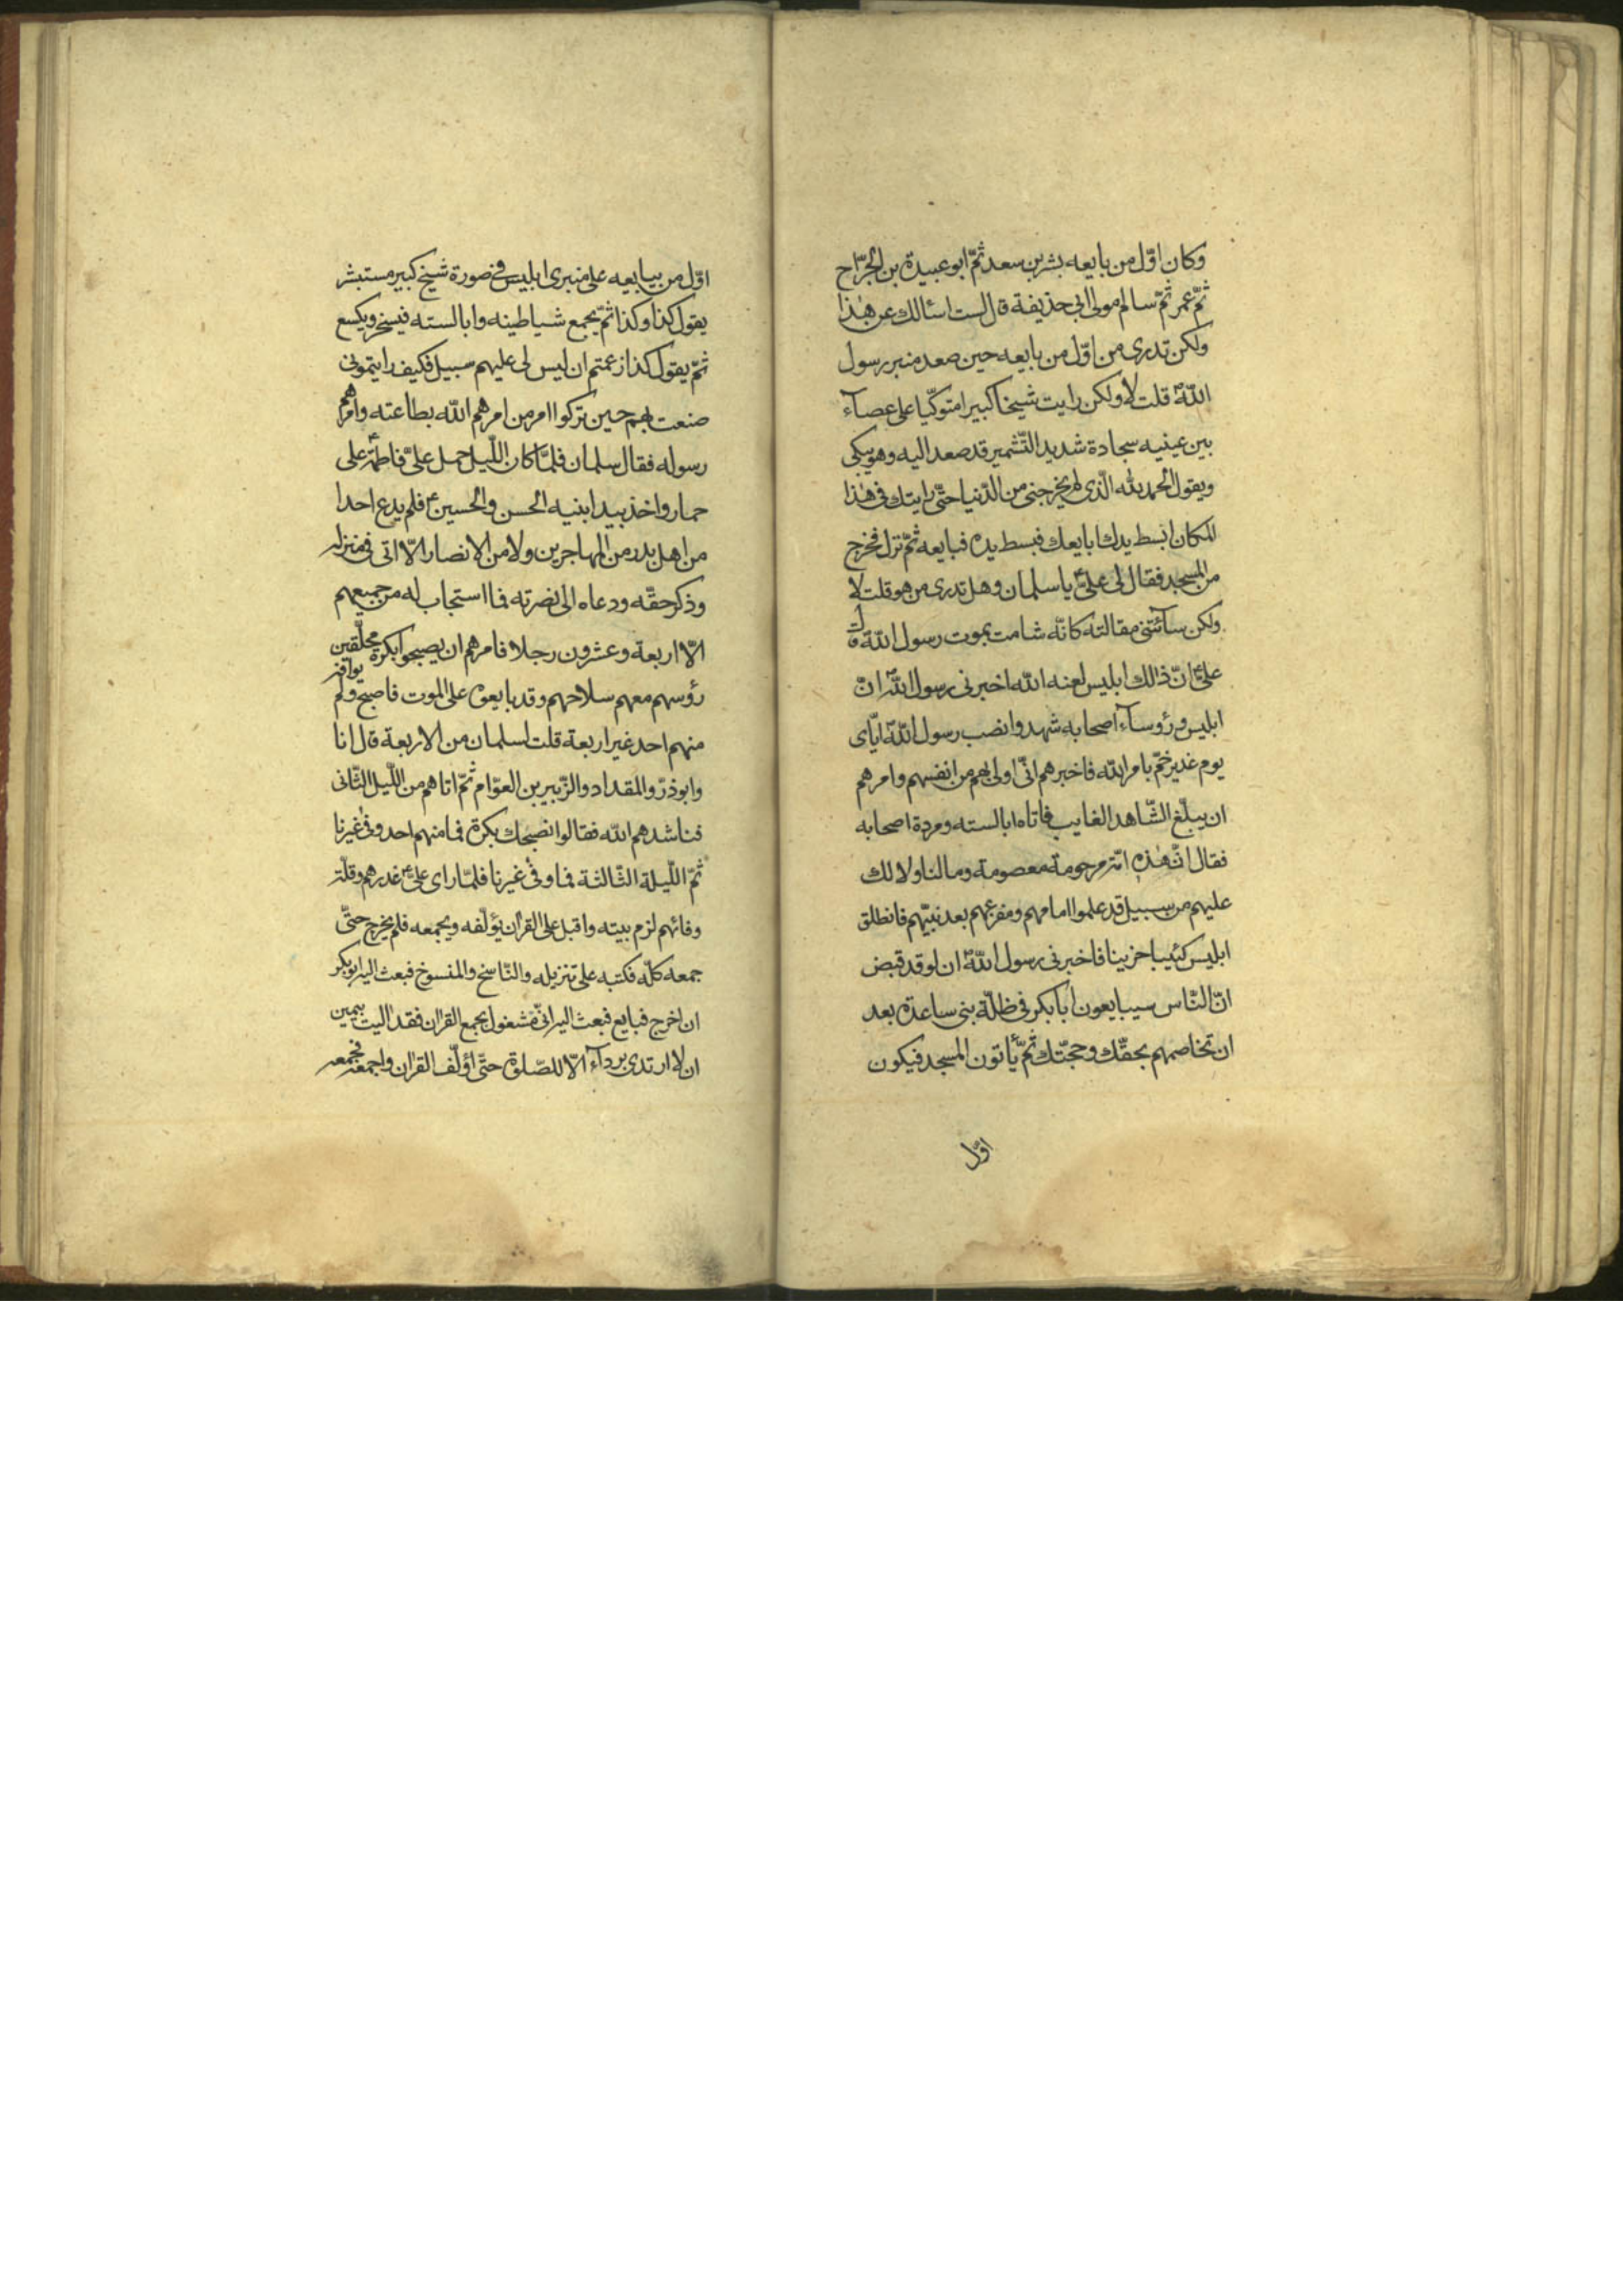 وكان اوّل من بايعه بشر بن سعد ثمّ ابو عبيدة بن الجرّاح
ثمّ عمر ثمّ سالم مولى ابى حذيفة قال لست اسئالك عن هذا
ولكن تدرى من اوّل من بايعه حين صعد منبر رسول
اللهؐ قلت لا ولكن رايت شيخا كبيرا متوكّيا على عصآء
بين عينيه سجادة شديد التّشمير قد صعد اليه وهو يبكى
ويقول الحمد لله الّذى لم يخرجنى من الدّنيا حتّى رايتك فى هذا
المكان ابسط يدك ابايعك فبسط يده فبايعه ثمّ نزل فخرج
من المسجد فقال لى علىّؑ يا سلمان وهل تدرى من هو قلت لا
ولكن سآئتنى مقالته كانّه شامت بموت رسول اللهؐ قال
علىّؑ انّ ذالك ابليس لعنه الله اخبرنى رسول اللهؐ انّ
ابليس ورؤسآء اصحابه شهدوا نصب رسول اللهؐ ايّاى
يوم غدير خمّ بامر الله فاخبرهم انّى اولى بهم من انفسهم وامرهم
ان يبلّغ الشّاهد الغايب فاتاه ابالسته ومردة اصحابه
فقال انّ هذه امّة مرحومة معصومة وما لنا ولا لك
عليهم من سبيل قد علموا امامهم ومفزعهم بعد نبيّهم فانطلق
ابليس كئيبا حزينا فاخبرنى رسول اللهؐ ان لو قد قبض
انّ النّاس سيبايعون ابا بكر فى ظلّة بنى ساعدة بعد
ان تخاصمهم بحقّك وحجّتك ثمّ يأتون المسجد فيكون
اوّل
اوّل من يبايعه على منبرى ابليس فى صورة شيخ كبير مستبشر
يقول كذا وكذا ثمّ يجمع شياطينه وابالسته فينخر ويكسع
ثمّ يقول كذا زعمتم ان ليس لى عليهم سبيل فكيف رايتمونى
صنعت بهم حين تركوا امر من امرهم الله بطاعته وامرهم
رسوله فقال سلمان فلمّا كان اللّيل حمل علىّ فاطمةؑ على
حمار واخذ بيد ابنيه الحسن والحسينؑ فلم يدع احدا
من اهل بدر من المهاجرين ولا من الانصار الّا اتى فى منزله
وذكر حقّه ودعاه الى نصرته فما استجاب له من جميعهم
الّا اربعة وعشرون رجلا فامرهم ان يصبحوا بكرة محلّقين
رؤسهم معهم سلاحهم وقد بايعوه على الموت فاصبح ولم يوافه
منهم احد غير اربعة قلت لسلمان من الاربعة قال انا
وابوذرّ والمقداد والزّبير بن العوّام ثمّ اتاهم من اللّيل الثّانى
فناشدهم الله فقالوا نصبحك بكرة فما منهم احد وفى غيرنا
ثمّ اللّيلة الثّالثة فما وفى غيرنا فلمّا راى علىّؑ غدرهم وقلّة
وفائهم لزم بيته واقبل على القران يؤلّفه ويجمعه فلم يخرج حتّى
جمعه كلّه فكتبه على تنزيله والنّاسخ والمنسوخ فبعث اليه ابوبكر
ان اخرج فبايع فبعث اليه انّى مشغول بجمع القران فقد اليت بيمين
ان لا ارتدى بردآء الّا للصّلوة حتّى اؤلّف القران واجمعه فجمعه